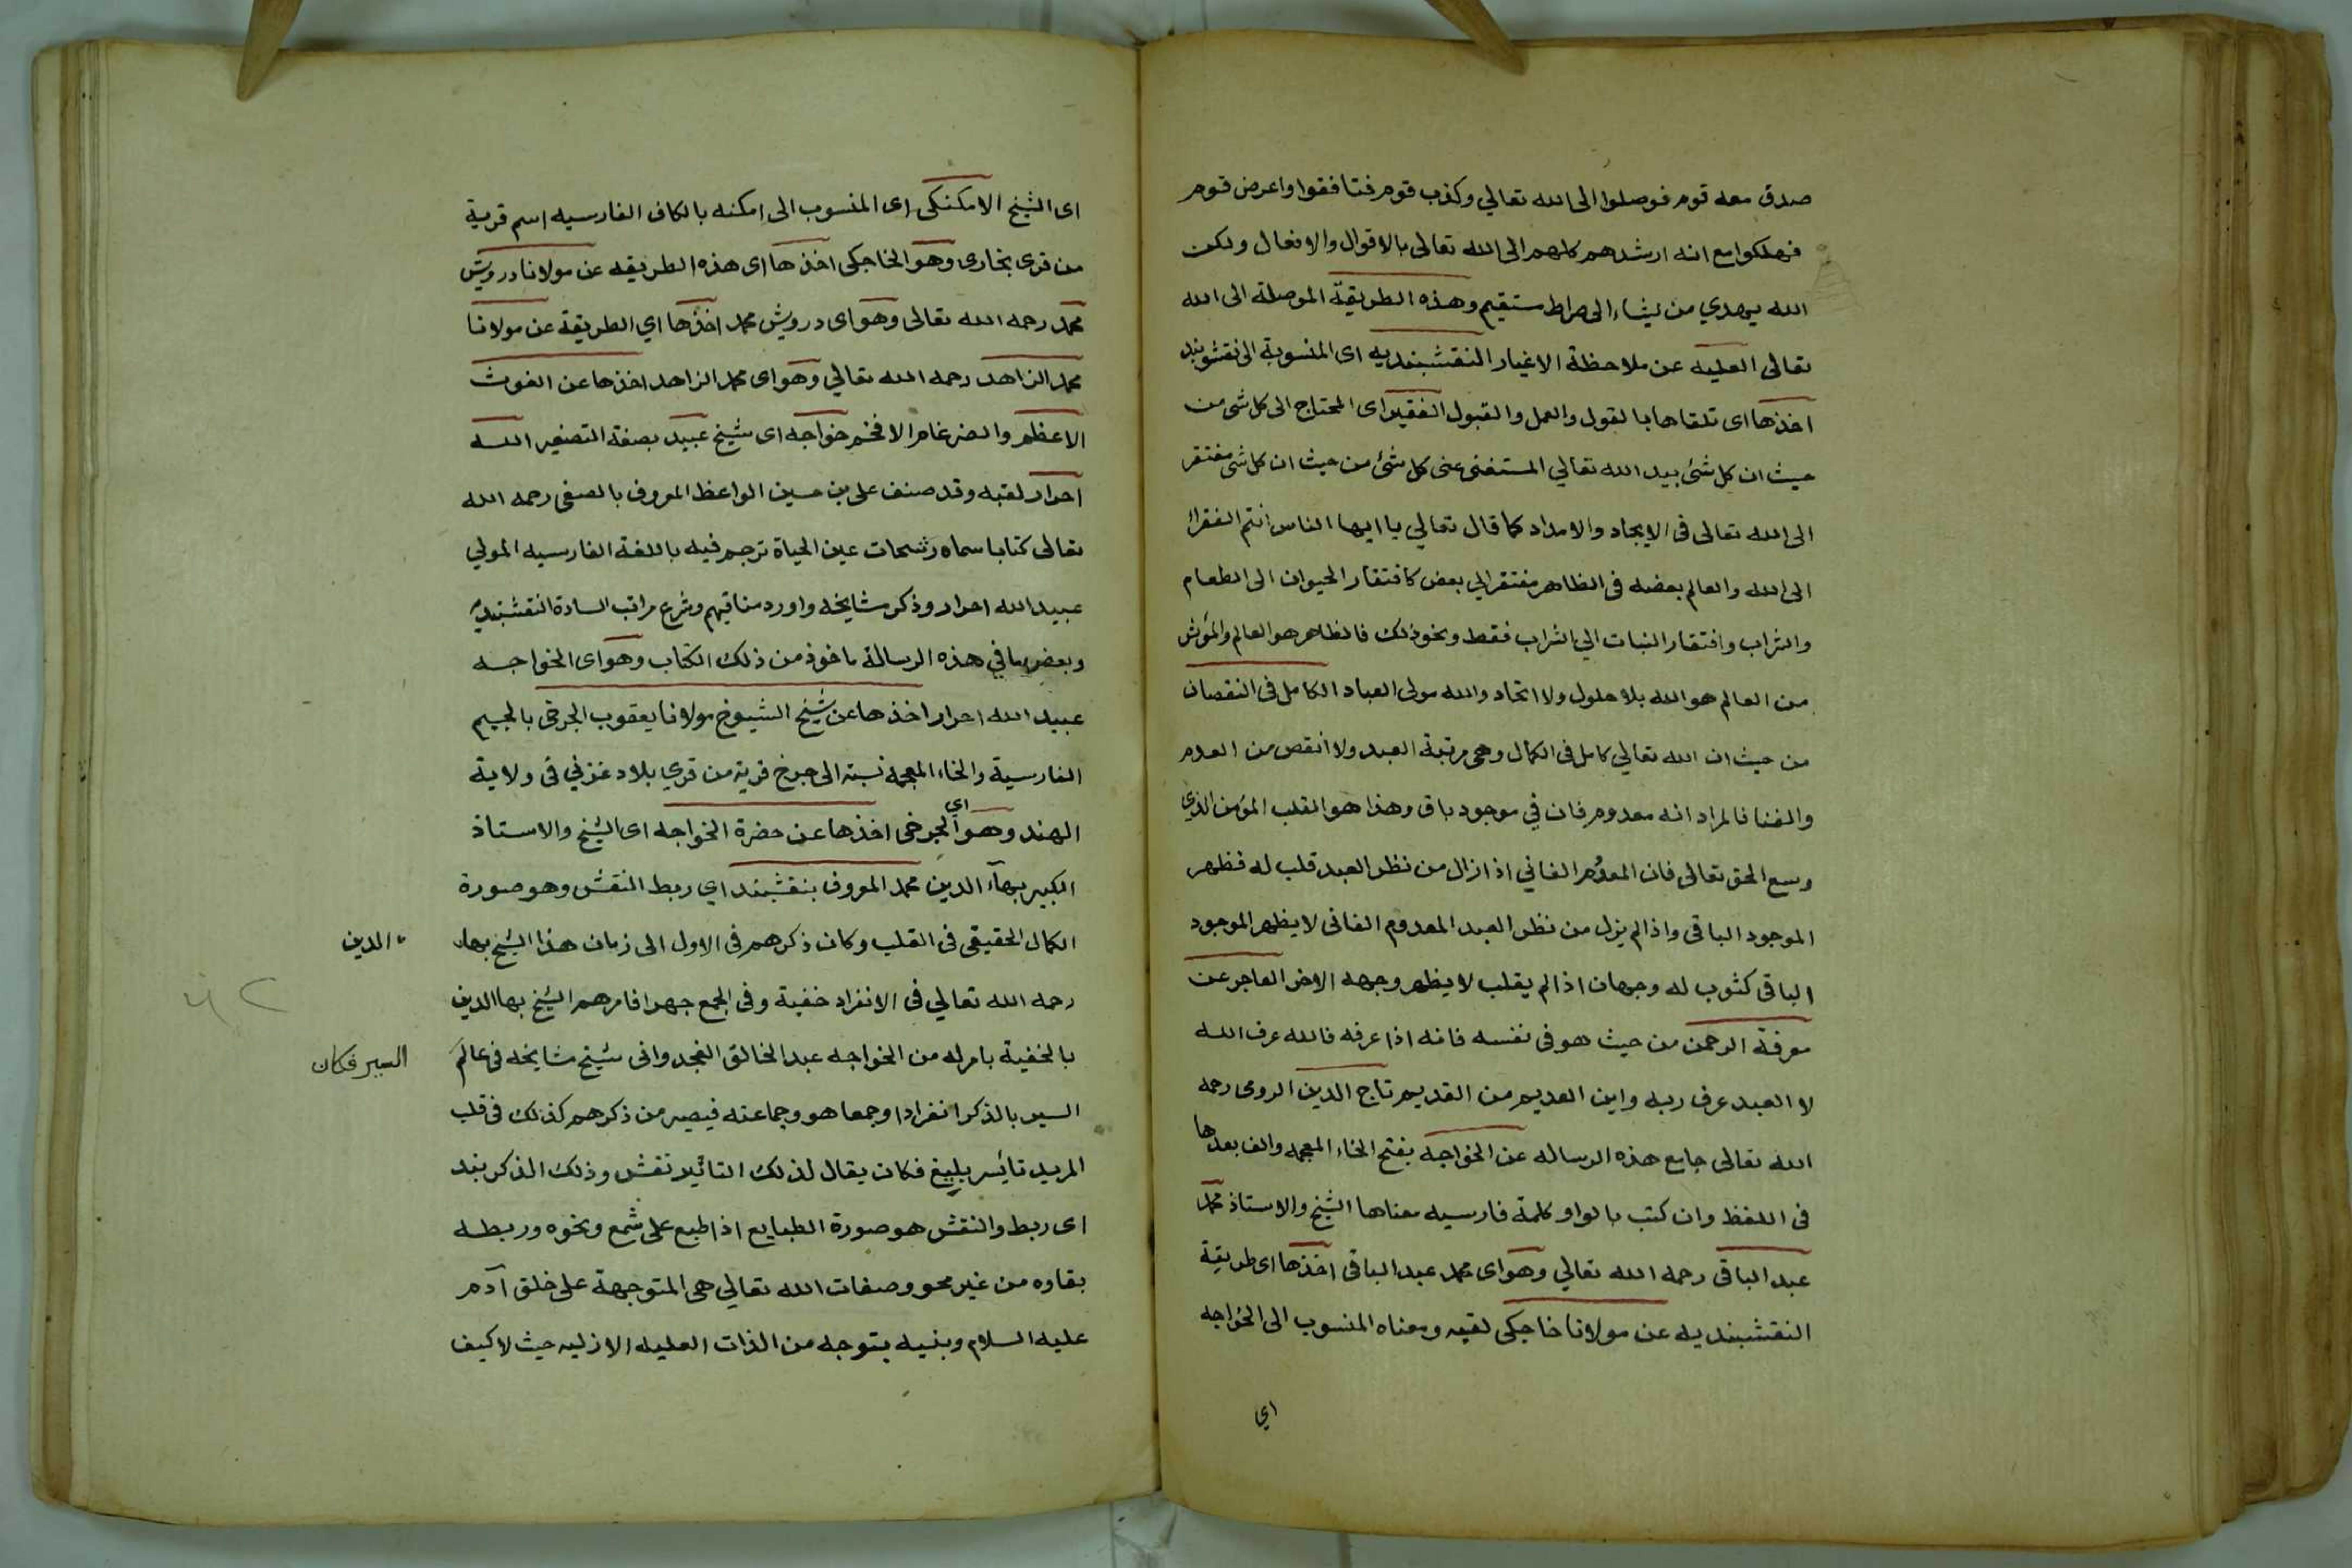 صدق معه قوم فوصلوا الى الله تعالي وكذب قوم فنافقوا واعرض قوم
فهلكوا مع انه ارشدهم كلهم الى الله تعالى بالاقوال والافعال ولكن
الله يهدي من يشاء الى صراط مستقيم وهذه الطريقة الموصلة الى الله
تعالى العليه عن ملاحظة الاغيار النقشبنديه اى المنسوبة الى نقشبند
اخذها اى تلقاها بالقول والعمل والقبول الفقير اى المحتاج الى كل شى من
حيث ان كل شئ بيد الله تعالي المستغنى عن كل شئ من حيث ان كل شى مفتقر
الى الله تعالى فى الايجاد والامداد كما قال تعالي يا ايها الناس انتم الفقراء
الى الله والعالم بعضه فى الظاهر مفتقر الي بعض كافتقار الحيوان الى الطعام
والشراب وافتقار النبات الي الشراب فقط ونحو ذلك فالظاهر هو العالم والمؤثر
من العالم هو الله بلا حلول ولا اتحاد والله مولى العباد الكامل فى النقصان
من حيث ان الله تعالي كامل فى الكمال وهى مرتبة العبد ولا انقص من العدم
والفنا فالمراد انه معدوم فان في موجود باق وهذا هو القلب المؤمن الذي
وسع الحق تعالى فان المعدوم الفاني اذا زال من نظر العبد قلب له فظهر
الموجود الباقى واذا لم يزل من نظر العبد المعدوم الفانى لا يظهر الموجود
الباقى كثوب له وجهان اذا لم يقلب لا يظهر وجهه الاخر العاجر عن
معرفة الرحمن من حيث هو فى نفسه فانه اذا عرفه فالله عرف الله
لا العبد عرف ربه واين العديم من القديم تاج الدين الرومى رحمه
الله تعالى جامع هذه الرساله عن الخواجة بفتح الخاء المعجمه والف بعدها
فى اللفظ وان كتب بالواو كلمة فارسيه معناها الشيخ والاستاذ محمد
عبد الباقى رحمه الله تعالي وهو اى محمد عبد الباقى اخذها اى طريقة
النقشبنديه عن مولانا خاجكى لقبه ومعناه المنسوب الى الخواجه
اي
اى الشيخ الامكنكى اى المنسوب الى امكنه بالكاف الفارسيه اسم قرية
من قرى بخارى وهو الخاجكى اخذها اى هذه الطريقه عن مولانا درويش
محمد رحمه الله تعالى وهو اى درويش محمد اخذها اي الطريقة عن مولانا
محمد الزاهد رحمه الله تعالي وهو اى محمد الزاهد اخذها عن الغوث
الاعظم والضرغام الافخم خواجه اى شيخ عبيد بصفة التصغير الله
احرار لقبه وقد صنف على بن حسين الواعظ المعروف بالصفى رحمه الله
تعالى كتابا سماه رشحات عين الحياة ترجم فيه باللغة الفارسيه المولي
عبيد الله احرار وذكر مشايخه واورد مناقبهم وشرع مراتب السادة النقشبنديه
وبعض ما في هذه الرسالة ماخوذ من ذلك الكتاب وهو اى الخواجه
عبيد الله احرار اخذها عن شيخ الشيوخ مولانا يعقوب الجرخى بالجيم
الفارسية والخاء المعجمة نسبة الى جرخ قرية من قري بلاد غزني فى ولاية
الهند وهو اي الجرخى اخذها عن حضرة الخواجه اى الشيخ والاستاذ
الكبير بهآء الدين محمد المعروف بنقشبند اي ربط النقش وهو صورة
الكمال الحقيقى فى القلب وكان ذكرهم فى الاول الى زمان هذا الشيخ بهاء الدين
رحمه الله تعالي فى الانفراد خفية وفى الجمع جهرا فامرهم الشيخ بها الدين
بالخفية بامر له من الخواجه عبد الخالق الغجدوانى شيخ مشايخه فى عالم
السير فكان
السير بالذكر انفرادا وجمعا هو وجماعته فيصير من ذكرهم كذلك فى قلب
المريد تاثير بليغ فكان يقال لذلك التاثير نقش وذلك الذكر بند
اى ربط والنقش هو صورة الطبايع اذا طبع على شمع ونحوه وربطه
بقاوه من غير محو وصفات الله تعالي هى المتوجهة على خلق آدم
عليه السلام وبنيه بتوجه من الذات العليه الازليه حيث لا كيف